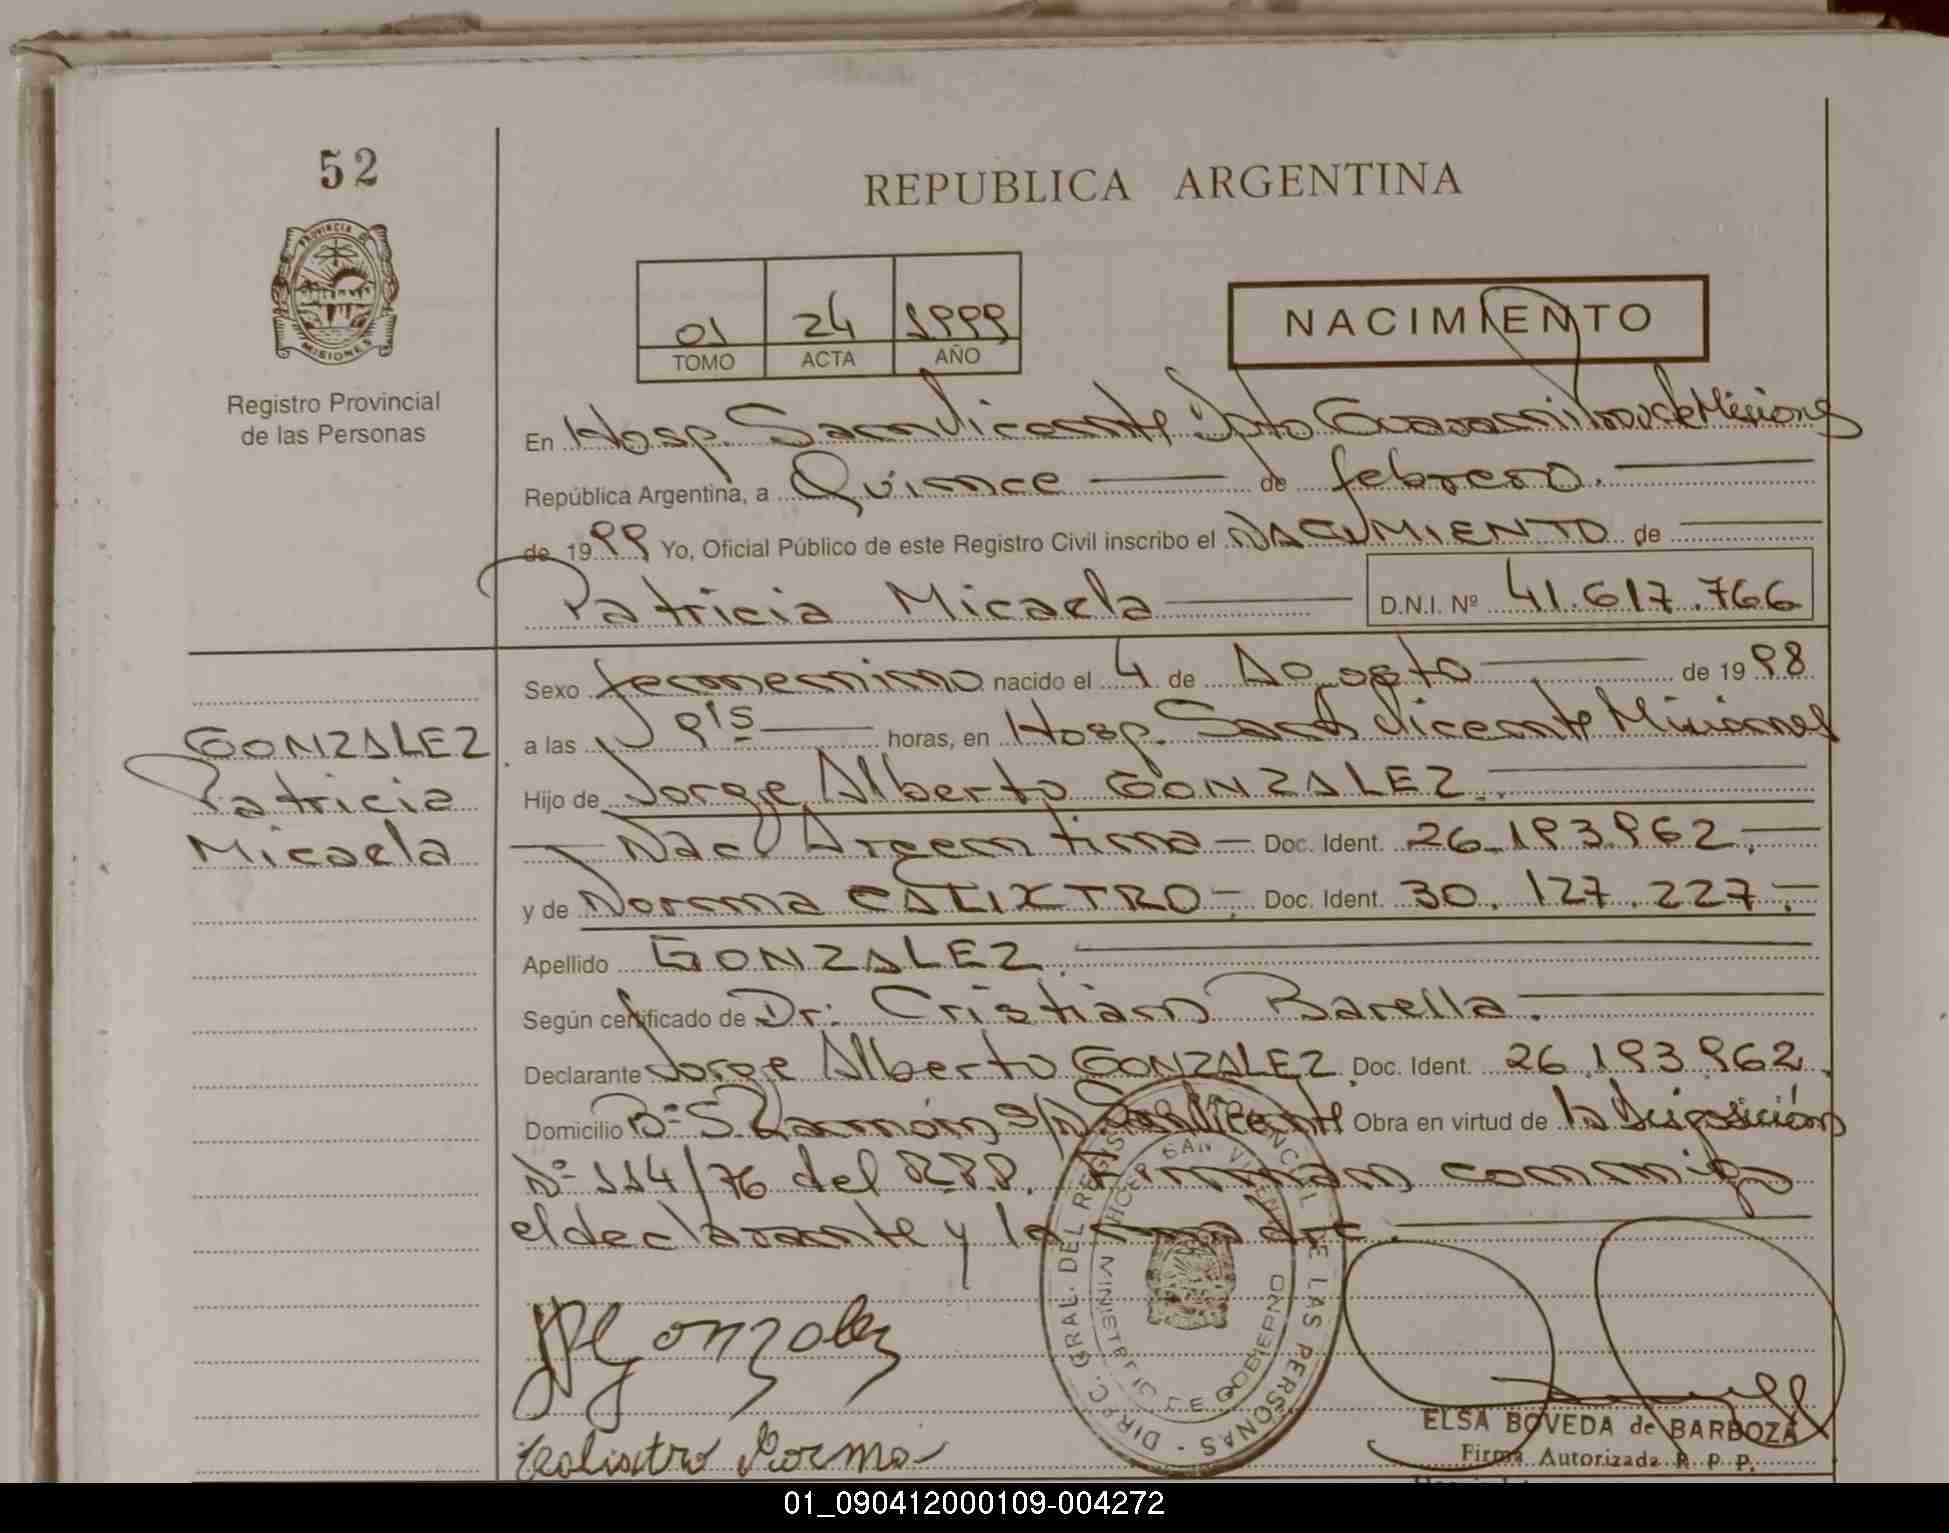 52
REPUBLICA ARGENTINA
PROVINCIA DE
MISIONES
Registro Provincial
de las Personas
01 24 1999
TOMO ACTA AÑO
NACIMIENTO
En Hosp. San Vicente Dpto Guaraní Prov. de Misiones
República Argentina, a Quince de febrero.
de 1999 Yo, Oficial Público de este Registro Civil inscribo el NACIMIENTO de
Patricia Micaela D.N.I. Nº 41.617.766
Sexo femenino nacido el 4 de Agosto de 1998
GONZALEZ
Patricia
Micaela
a las horas, en Hosp. San Vicente Misiones
Hijo de Jorge Alberto GONZALEZ.
Nac. Argentina Doc. Ident. 26.193.962.
y de Norma CALIXTRO Doc. Ident. 30.127.227.
Apellido GONZALEZ.
Según certificado de Dr: Cristian Barella.
Declarante Jorge Alberto GONZALEZ Doc. Ident. 26.193.962.
Domicilio Bº S. Ramón s/N San Vicente Obra en virtud de la Disposición
Nº 114/76 del R.P.P. Firman conmigo
el declarante y la madre.
DIREC. GRAL. DEL REGISTRO PROVINCIAL DE LAS PERSONAS
MINISTERIO DE GOBIERNO
SAN VICENTE
Gonzalez
Calixtro Norma
ELSA BOVEDA de BARBOZA
Firma Autorizada R. P. P.
01_090412000109-004272